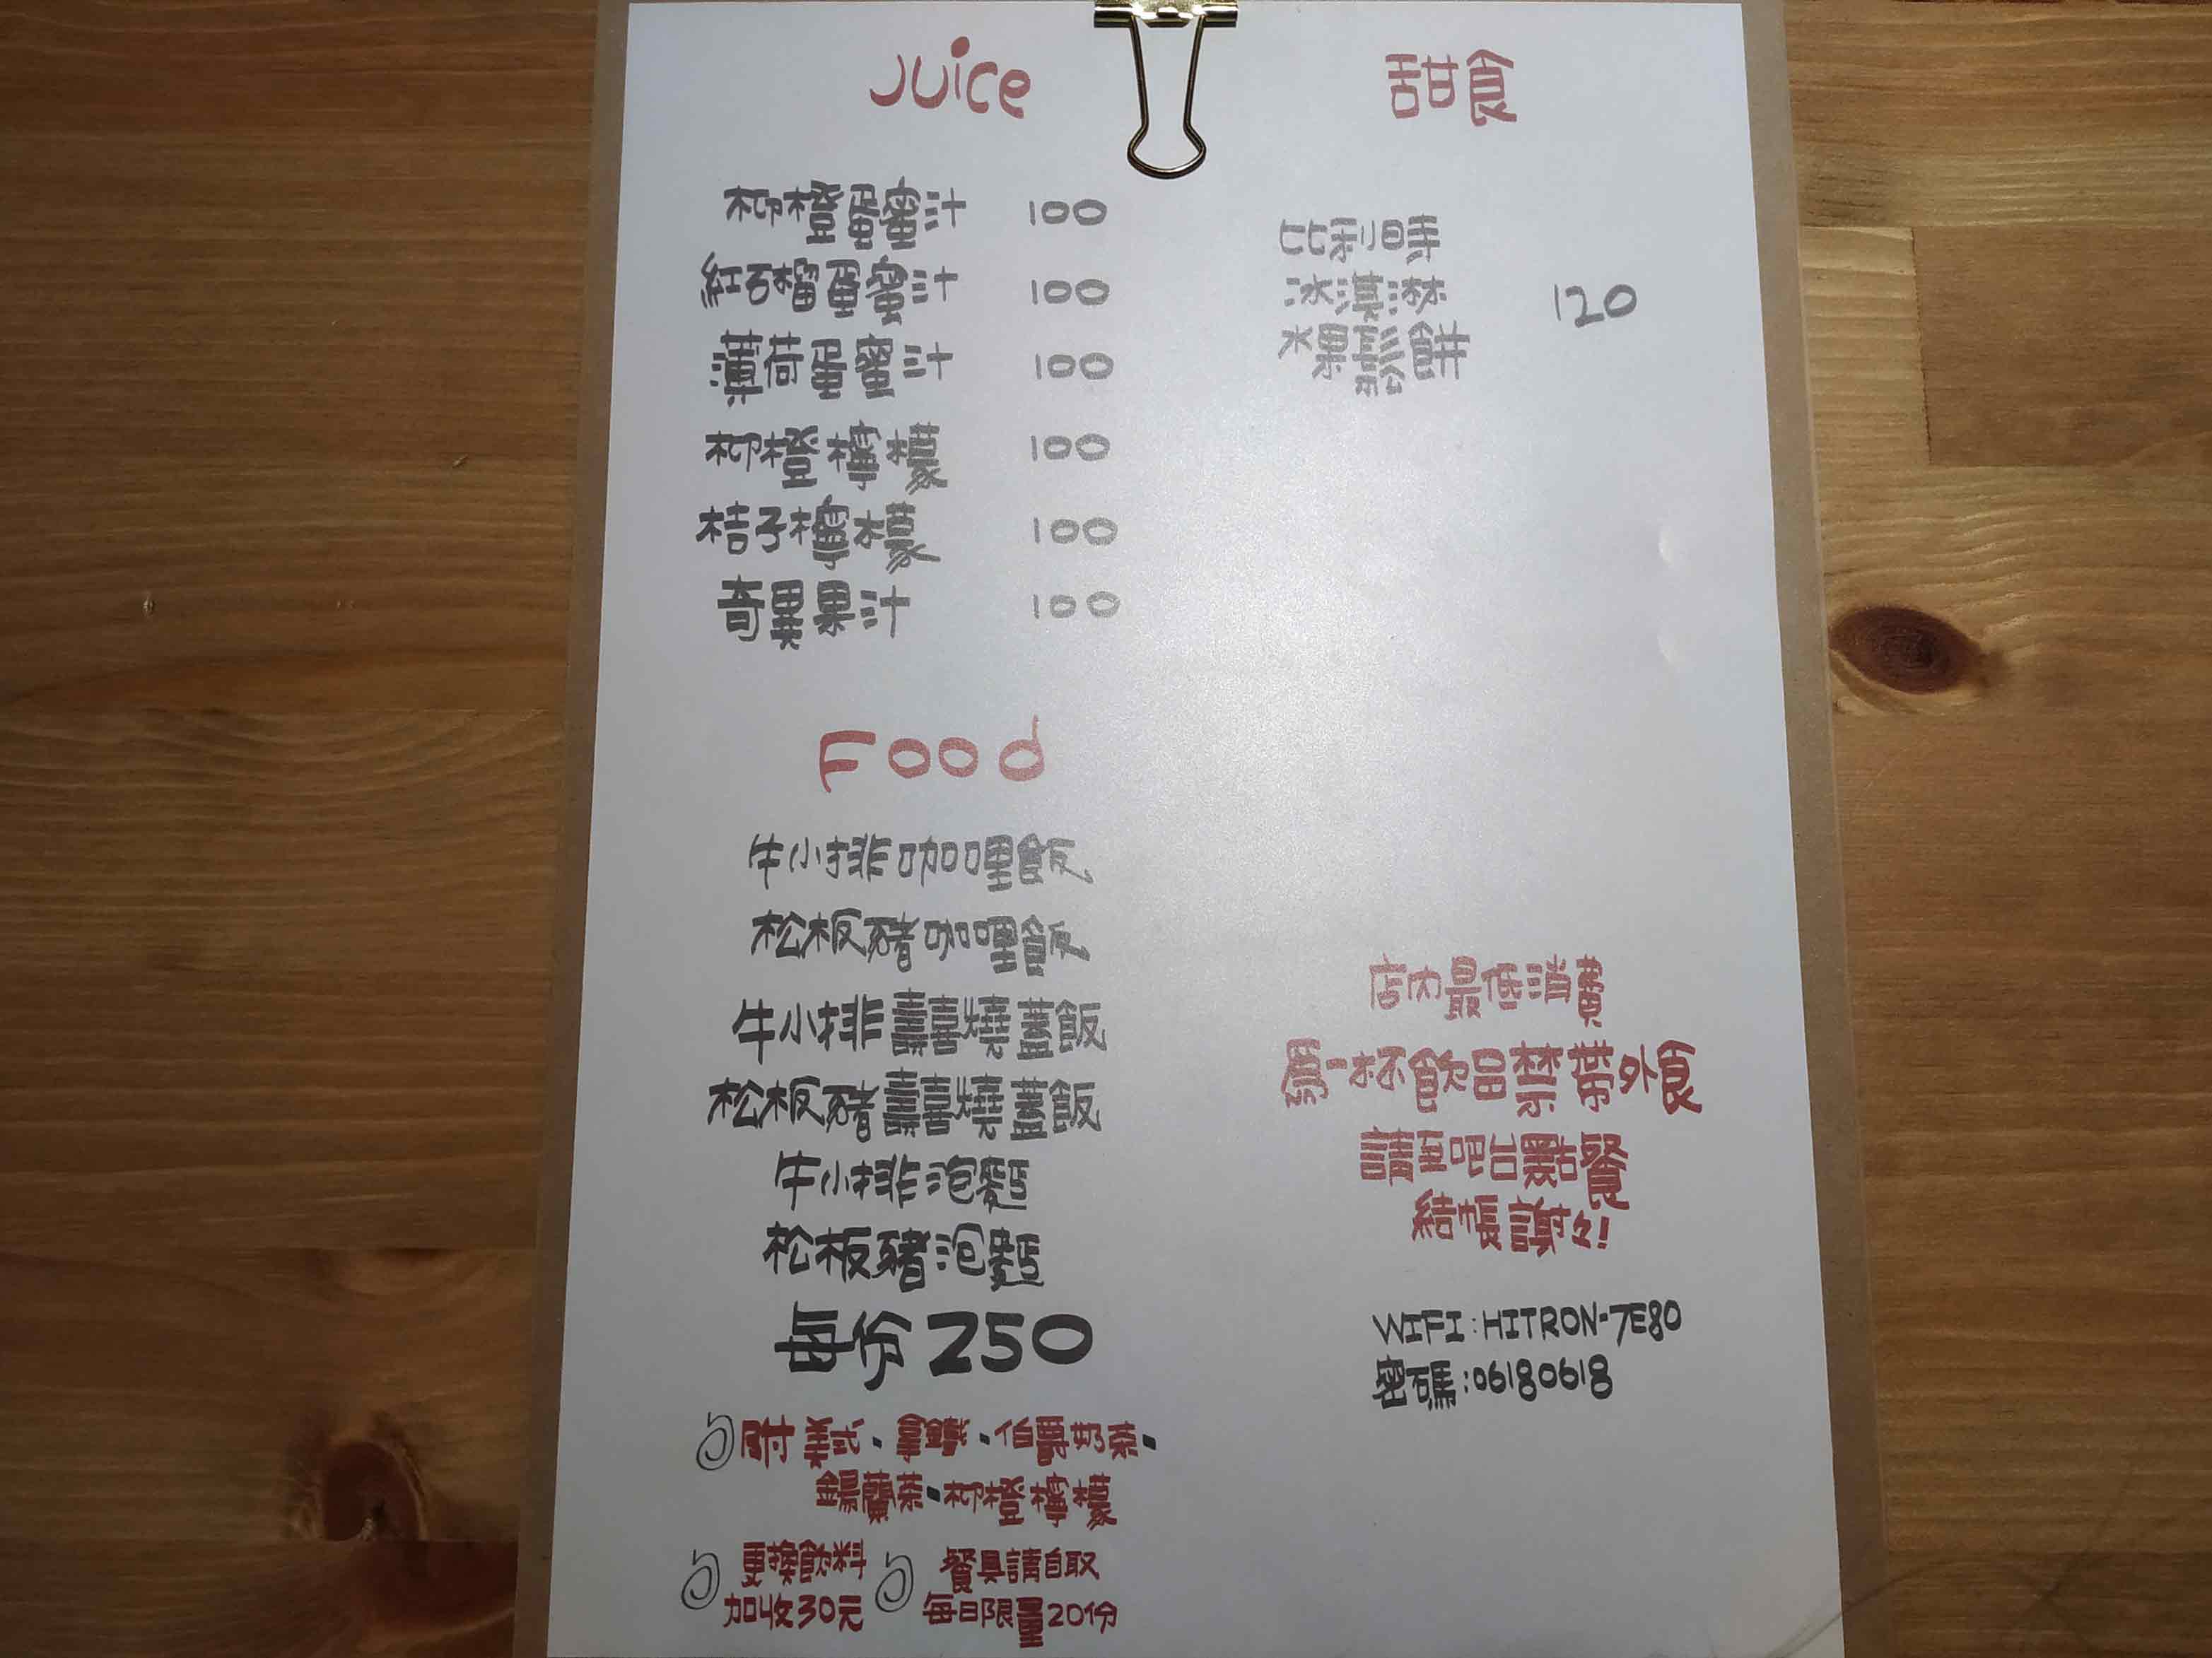 Juice
柳橙蛋蜜汁 100
紅石榴蛋蜜汁 100
薄荷蛋蜜汁 100
柳橙檸檬 100
桔子檸檬 100
奇異果汁 100
甜食
比利時
冰淇淋 120
水果鬆餅
Food
牛小排咖哩飯
松板豬咖哩飯
牛小排壽喜燒蓋飯
松板豬壽喜燒蓋飯
牛小排泡麵
松板豬泡麵
每份250
附美式.拿鐵.伯爵奶茶.
錫蘭茶.柳橙檸檬
更換飲料
加收30元
餐具請自取
每日限量20份
店內最低消費
為一杯飲品禁帶外食
請至吧台點餐
結帳謝々!
WIFI:HITRON-7E80
密碼:06180618